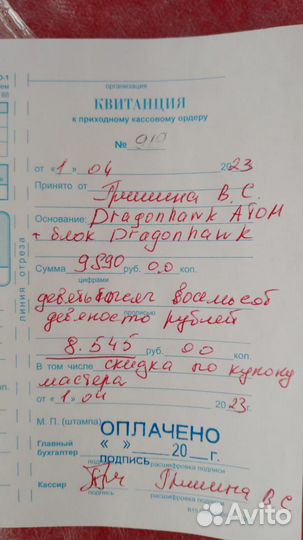 организация
КВИТАНЦИЯ
к приходному кассовому ордеру
№ 910
от «1» 04 2023
Принято от Гришина В.С.
Основание: Dragonhawk ATOM
+ блок Dragonhawk
Сумма 9890 руб. 00 коп.
цифрами
девятьтысяч восемьсот
прописью
девяносто рублей
8.545 руб. 00 коп.
В том числе скидка по купону
мастера
от «1» 04 2023 г.
М. П. (штампа) ОПЛАЧЕНО
« » 20 г.
Главный бухгалтер
подпись расшифровка подписи
Кассир Гришина В С
подпись расшифровка подписи
линия отреза
Avito